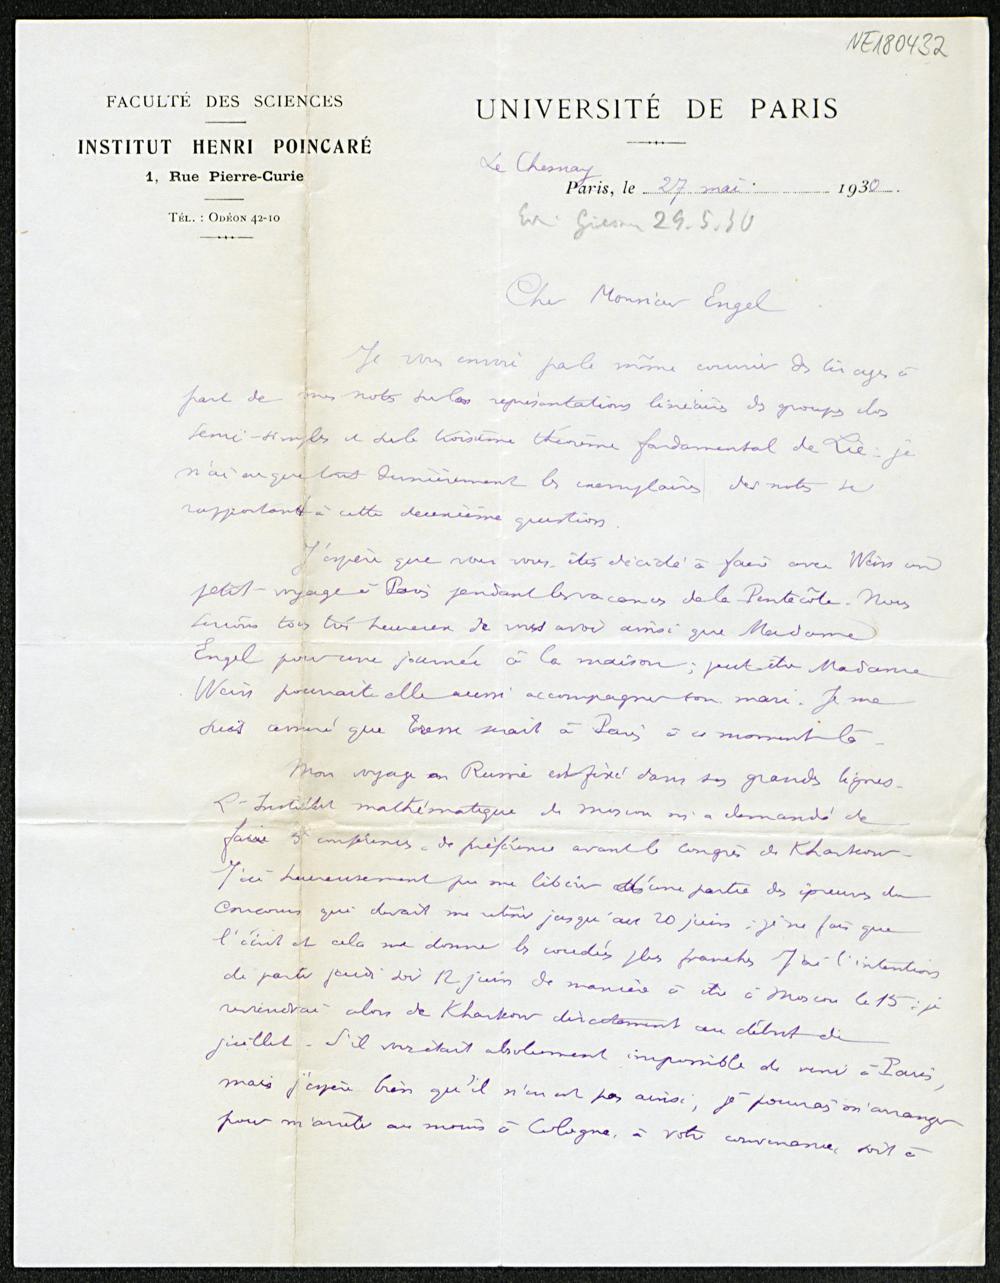 NE180432
FACULTÉ DES SCIENCES
INSTITUT HENRI POINCARÉ
1, Rue Pierre-Curie
TÉL. : ODÉON 42-10
UNIVERSITÉ DE PARIS
Le Chesnay
Paris, le 27 mai 1930.
29.5.30
Cher Monsieur Engel
Je vous envoie par le même courrier des tirages à
part de mes notes sur les représentations linéaires des groupes clos
semi-simples et sur le troisième théorème fondamental de Lie : je
n'ai eu que tout dernièrement les exemplaires des notes se
rapportant à cette deuxième question.
J'espère que vous vous êtes décidé à faire avec Weiss un
petit voyage à Paris pendant les vacances de la Pentecôte. Nous
serions tous très heureux de vous avoir ainsi que Madame
Engel pour une journée à la maison ; peut être Madame
Weiss pourrait elle aussi accompagner son mari. Je me
suis assuré que Tresse serait à Paris à ce moment là.
Mon voyage en Russie est fixé dans ses grandes lignes.
L'Institut mathématique de Moscou m'a demandé de
faire conférences, de préférence avant le congrès de Kharkow.
J'ai heureusement pu me libérer d'une partie des épreuves du
concours qui devait me retenir jusqu'au 20 juin ; je ne fais que
l'écrit et cela me donne les coudées plus franches. J'ai l'intention
de partir jeudi soir 12 juin de manière à être à Moscou le 15 ; je
reviendrai alors de Kharkow directement au début de
juillet. S'il vous était absolument impossible de venir à Paris,
mais j'espère bien qu'il n'en est pas ainsi, je pourrais m'arranger
pour m'arrêter au moins à Cologne, à votre convenance, soit à